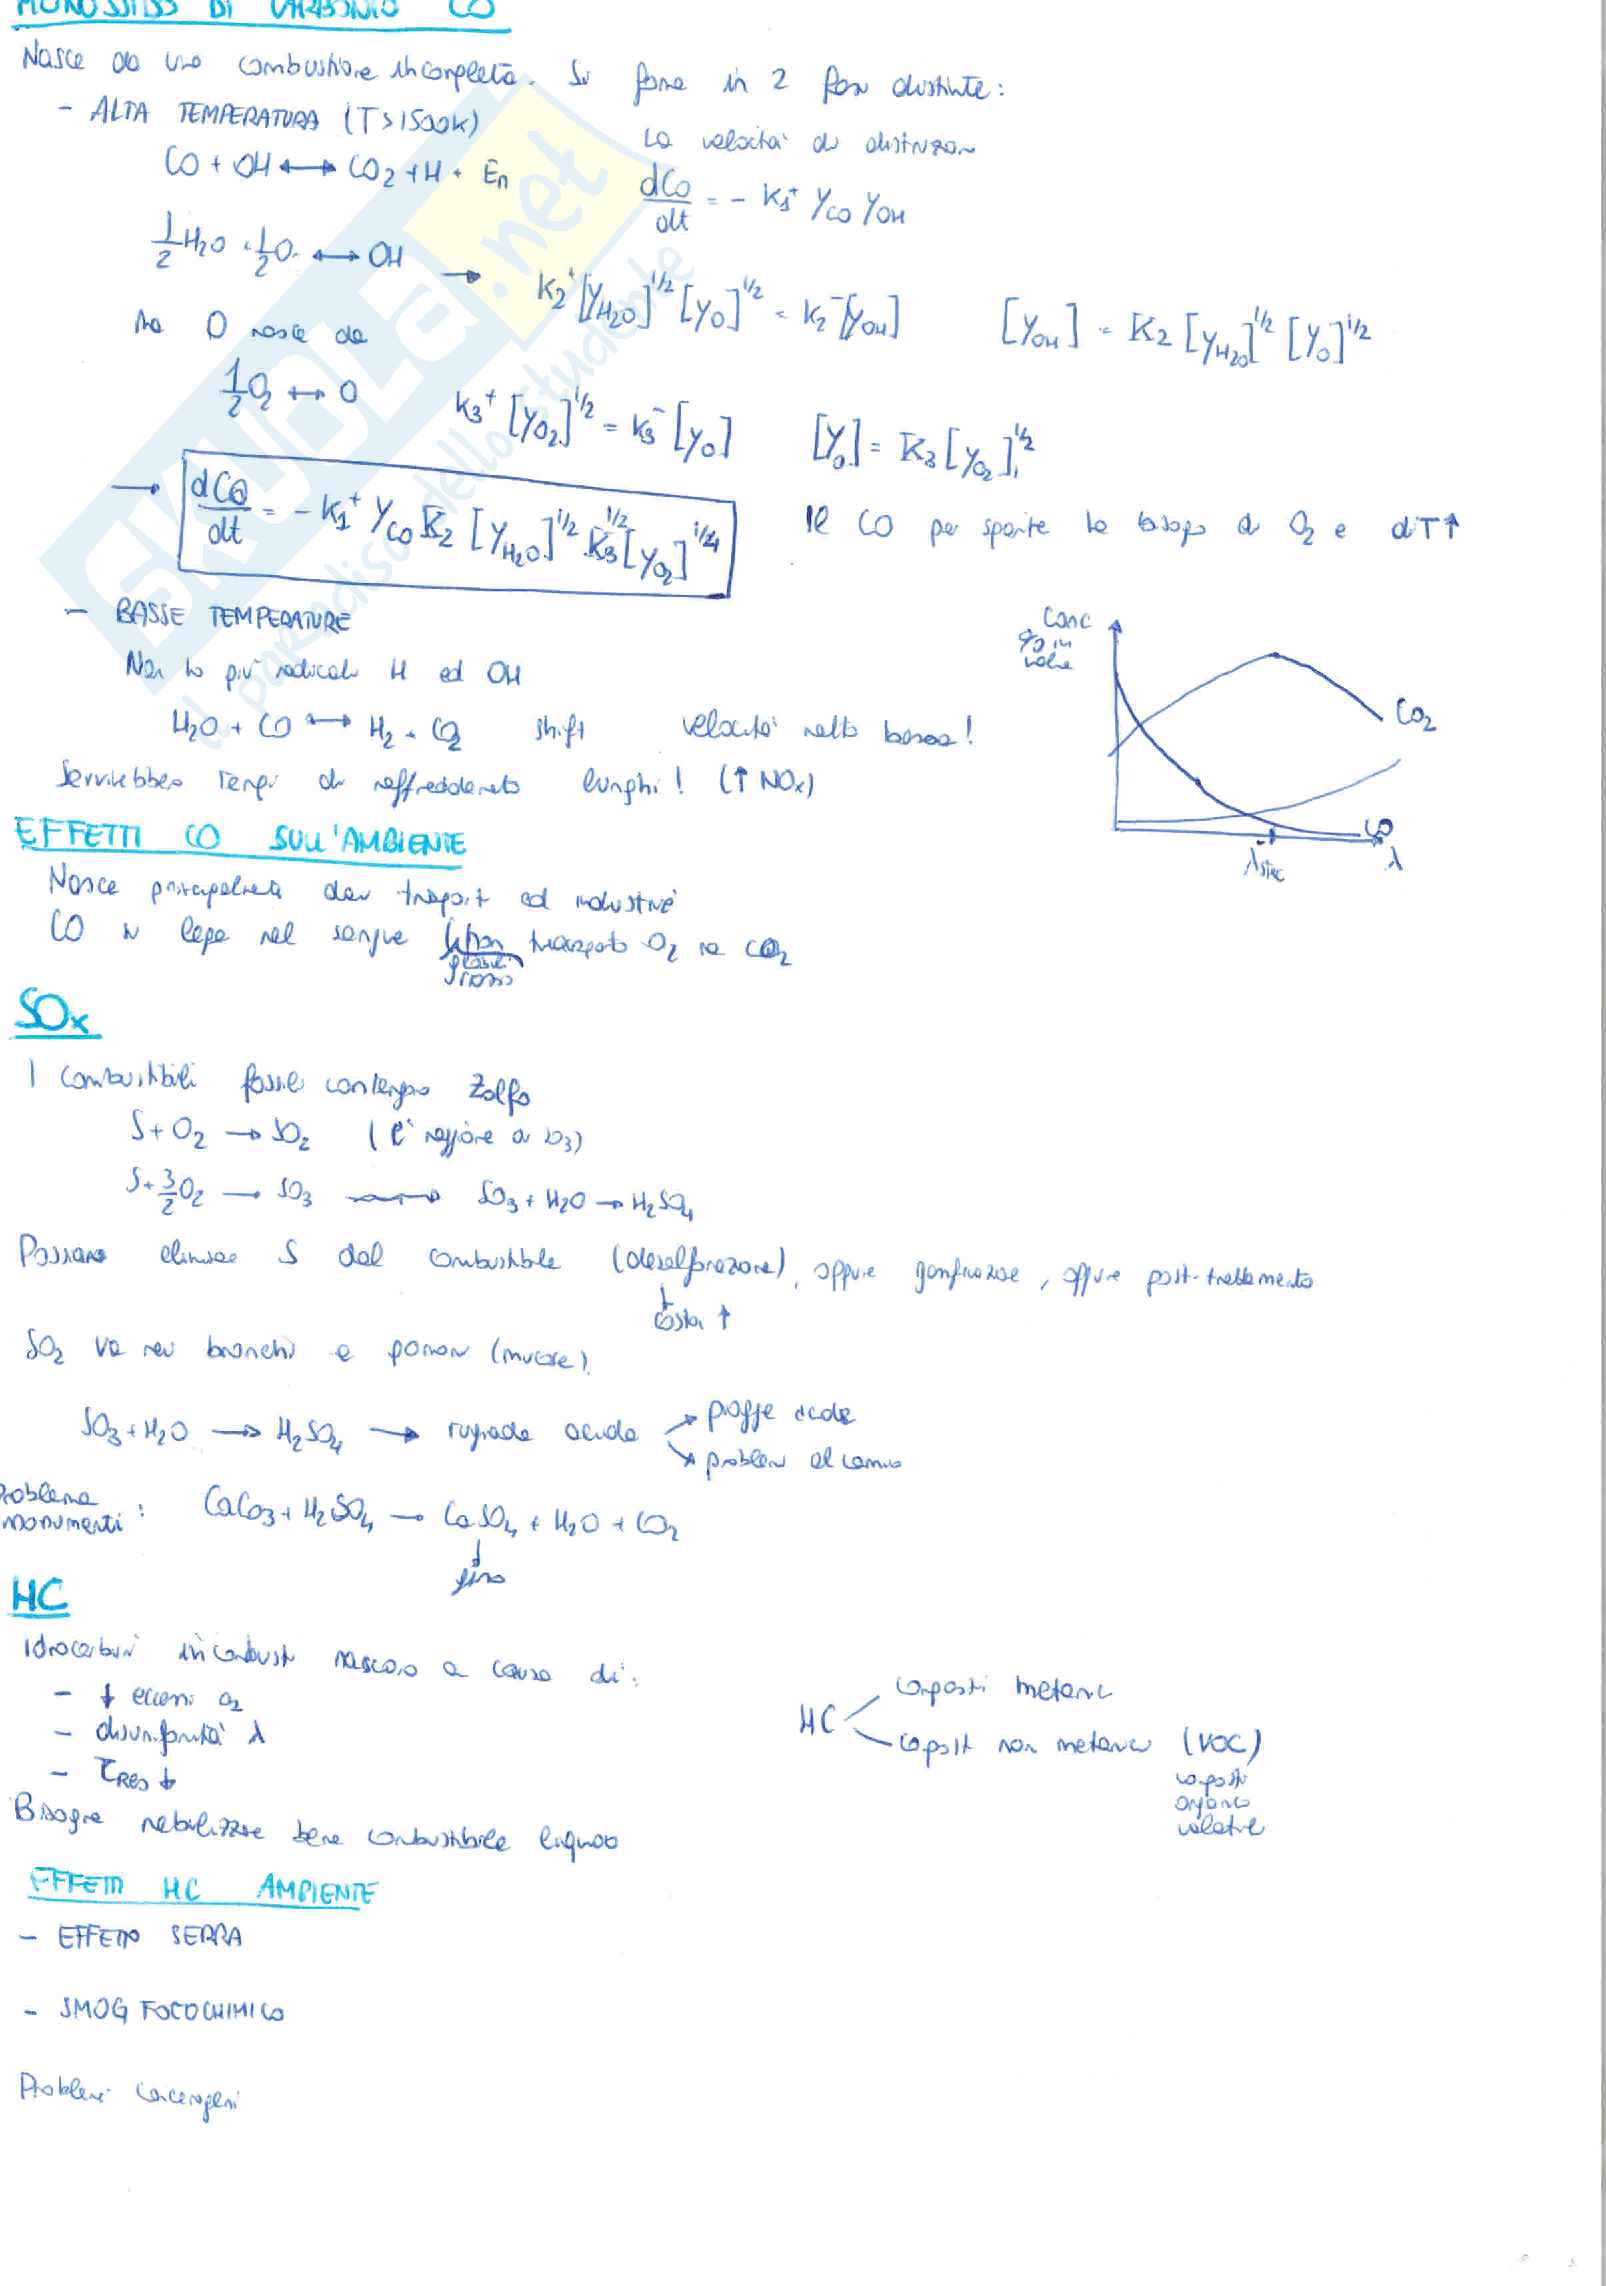 MONOSSIDO DI CARBONIO CO
Nasce da una combustione incompleta. Si forma in 2 fasi distinte:
- ALTA TEMPERATURA (T>1500K)
La velocità di distruzione
CO + OH ⟷ CO2 + H + En
dCO/dt = - K1+ yCO yOH
1/2 H2O + 1/2 O2 ⟷ OH → K2+ [yH2O]^1/2 [yO]^1/2 = K2- [yOH] [yOH] = K2 [yH2O]^1/2 [yO]^1/2
ma O nasce da
1/2 O2 ⟷ O K3+ [yO2]^1/2 = K3- [yO] [yO] = K3 [yO2]^1/2
→ dCO/dt = - K1+ yCO K2 [yH2O]^1/2 K3^1/2 [yO2]^1/4
Il CO per sparire ha bisogno di O2 e di T↑
- BASSE TEMPERATURE
Non ho più radicali H ed OH
H2O + CO ⟷ H2 + CO2 shift velocità molto bassa!
Servirebbero tempi di raffreddamento lunghi! (↑ NOx)
Conc
% in
volume
CO2
CO
λstec
λ
EFFETTI CO SULL'AMBIENTE
Nasce principalmente dai trasporti ed industrie
CO si lega nel sangue trasporto O2 ma CO2
SOx
I combustibili fossili contengono Zolfo
S + O2 → SO2 (è maggiore di SO3)
S + 3/2 O2 → SO3 → SO3 + H2O → H2SO4
Possiamo eliminare S dal combustibile (desolforazione), oppure gassificazione, oppure post-trattamento
costi ↑
SO2 va nei bronchi e polmoni (mucose).
SO3 + H2O → H2SO4 → rugiada acida
piogge acide
problemi al camino
Problema
monumenti : CaCO3 + H2SO4 → CaSO4 + H2O + CO2
gesso
HC
Idrocarburi incombusti nascono a causa di:
- ↓ eccessi O2
- disuniformità λ
- τRES ↓
HC
composti metanici
composti non metanici (VOC)
composti
organici
volatili
Bisogna nebulizzare bene combustibile liquido
EFFETTI HC AMBIENTE
- EFFETTO SERRA
- SMOG FOCOCHIMICO
Problemi cancerogeni
SKUOLA.net
il paradiso dello studente